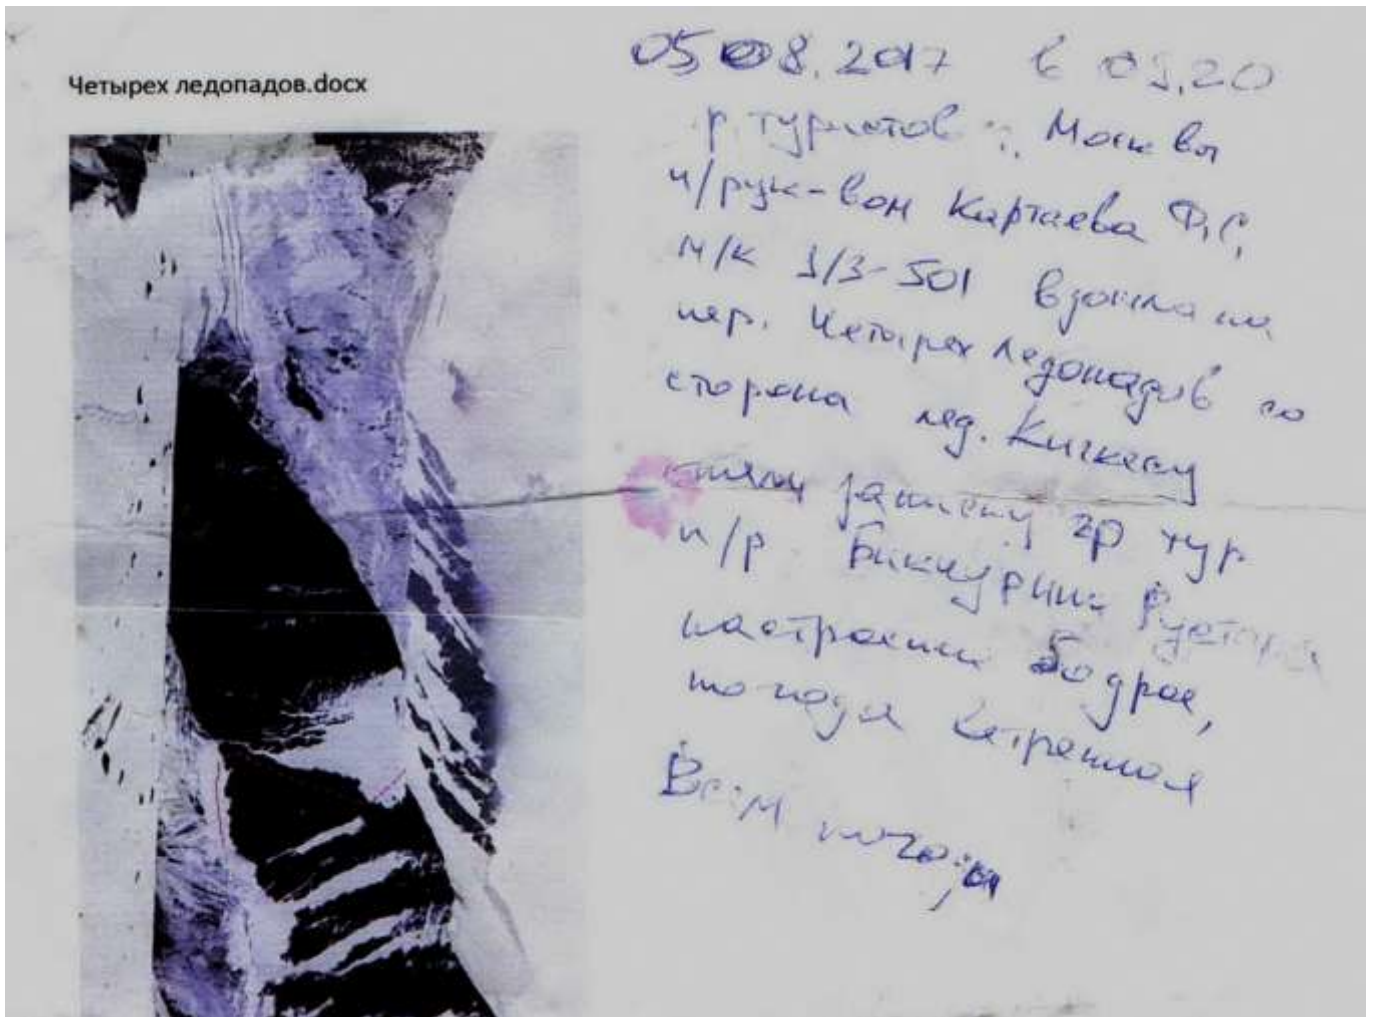 Четырех ледопадов.docx
05 08.2017 в 09.20
р. туристов г. Москвы
п/рук-вом Картаева Ф.С,
м/к 1/3-501 взошла на
пер. Четырех ледопадов со
стороны лед. Кичкесу
сняли записку гр тур
п/р. Бикчурина Рустама
настроение бодрое,
погода ветренная
Всем погоды